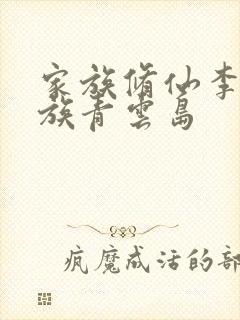 家族脩仙李
族青雲島
疯魔成活的部